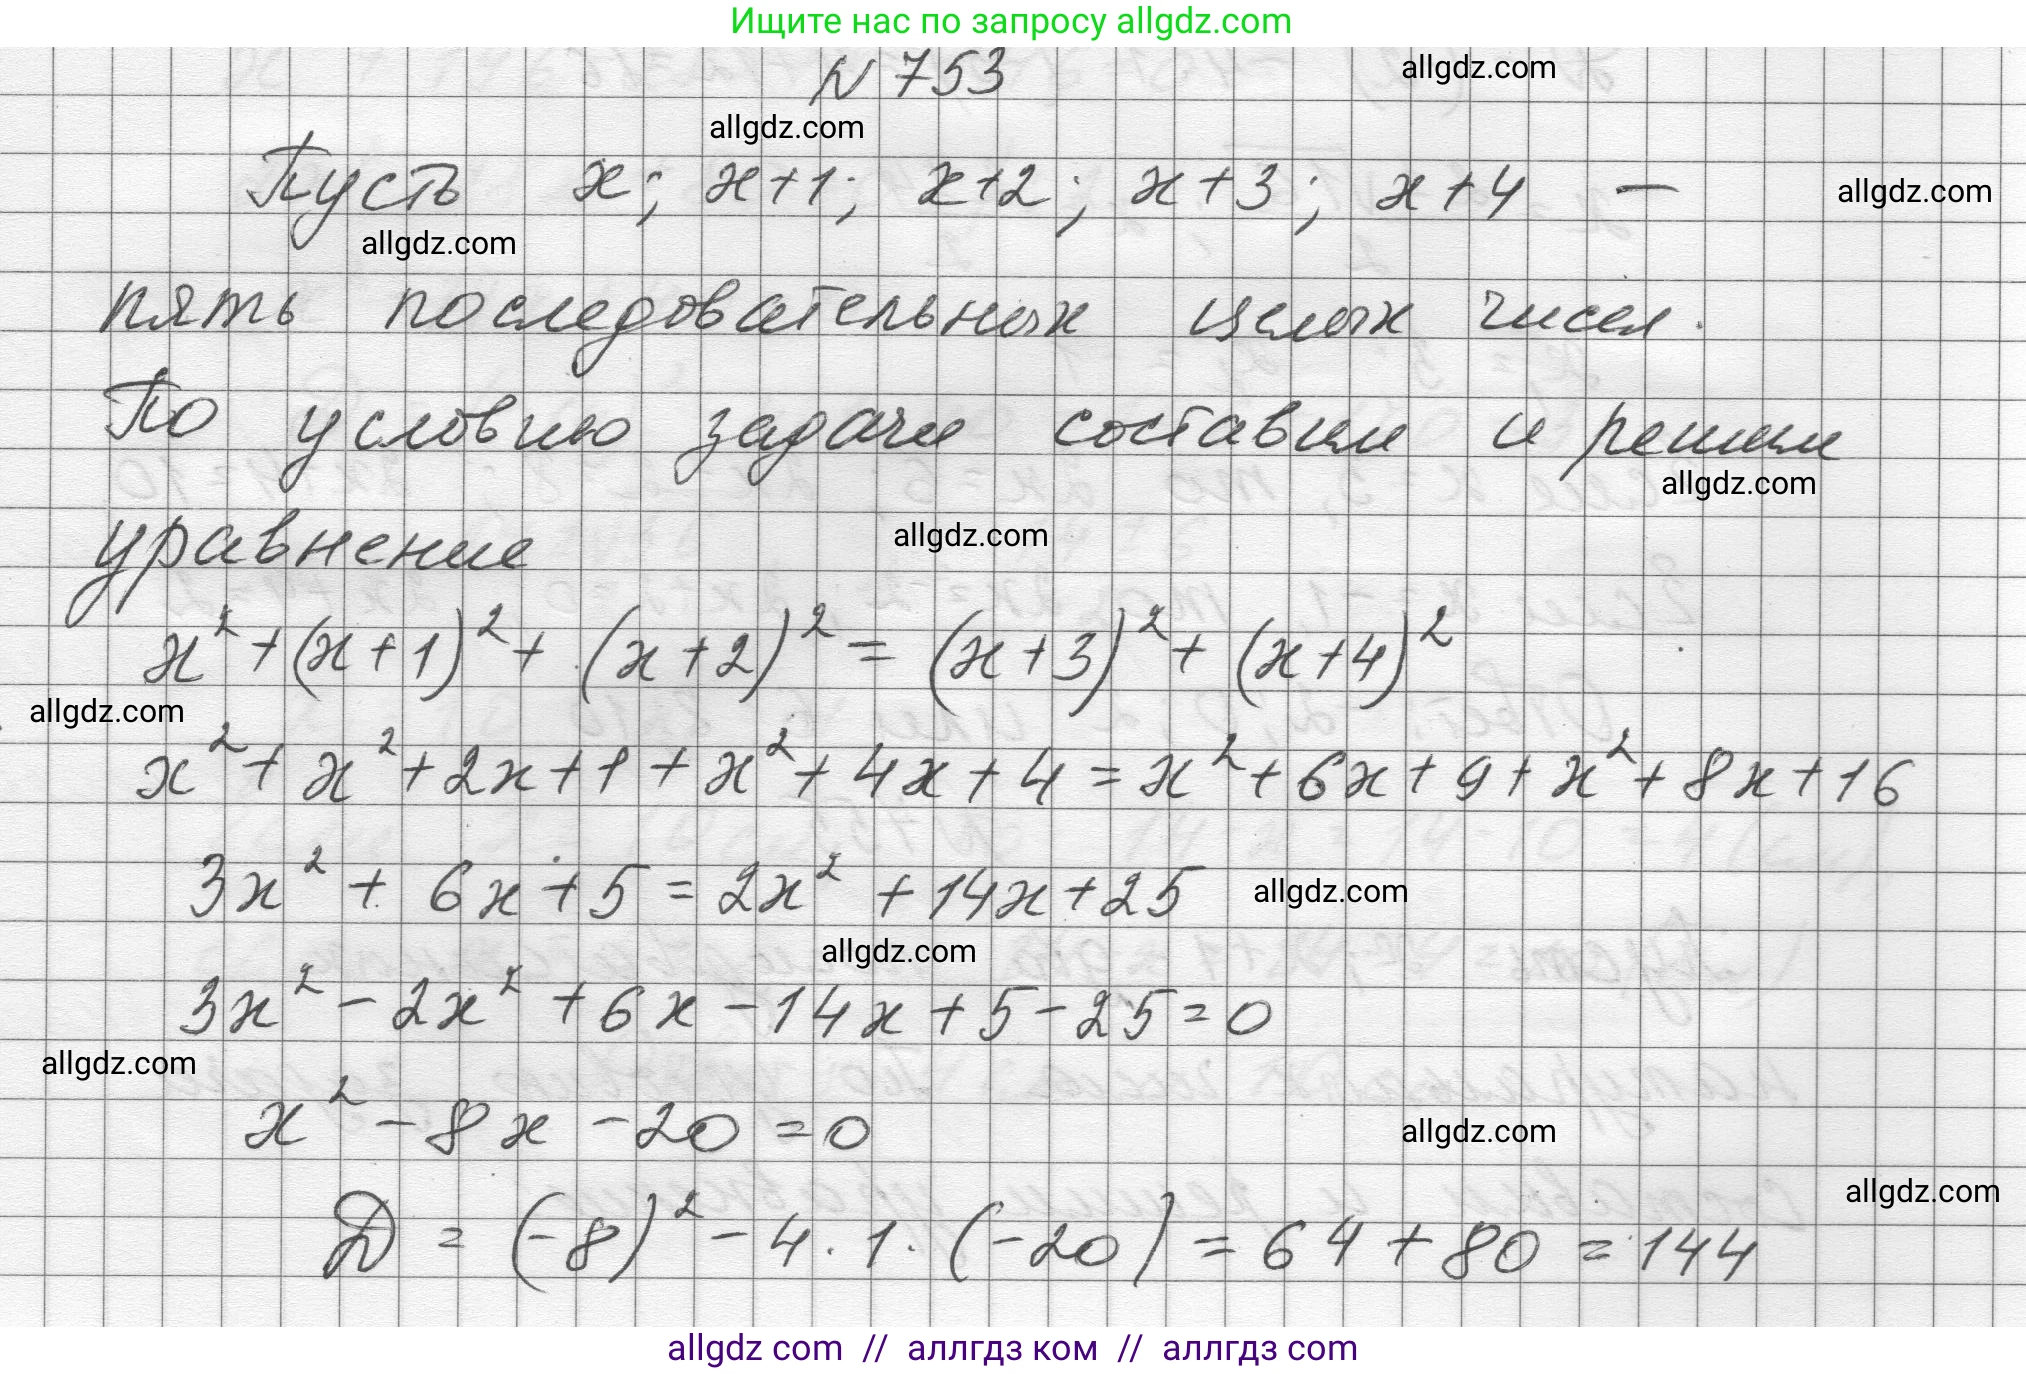 Ищите нас по запросу allgdz.com
N 753
allgdz.com
allgdz.com
Пусть x; x+1; x+2; x+3; x+4 —
allgdz.com
allgdz.com
пять последовательных целых чисел.
По условию задачи составим и решим
allgdz.com
уравнение
allgdz.com
x² + (x+1)² + (x+2)² = (x+3)² + (x+4)²
allgdz.com
x² + x² + 2x + 1 + x² + 4x + 4 = x² + 6x + 9 + x² + 8x + 16
3x² + 6x + 5 = 2x² + 14x + 25
allgdz.com
allgdz.com
3x² - 2x² + 6x - 14x + 5 - 25 = 0
allgdz.com
x² - 8x - 20 = 0
allgdz.com
allgdz.com
D = (-8)² - 4 · 1 · (-20) = 64 + 80 = 144
allgdz com // аллгдз ком // аллгдз com